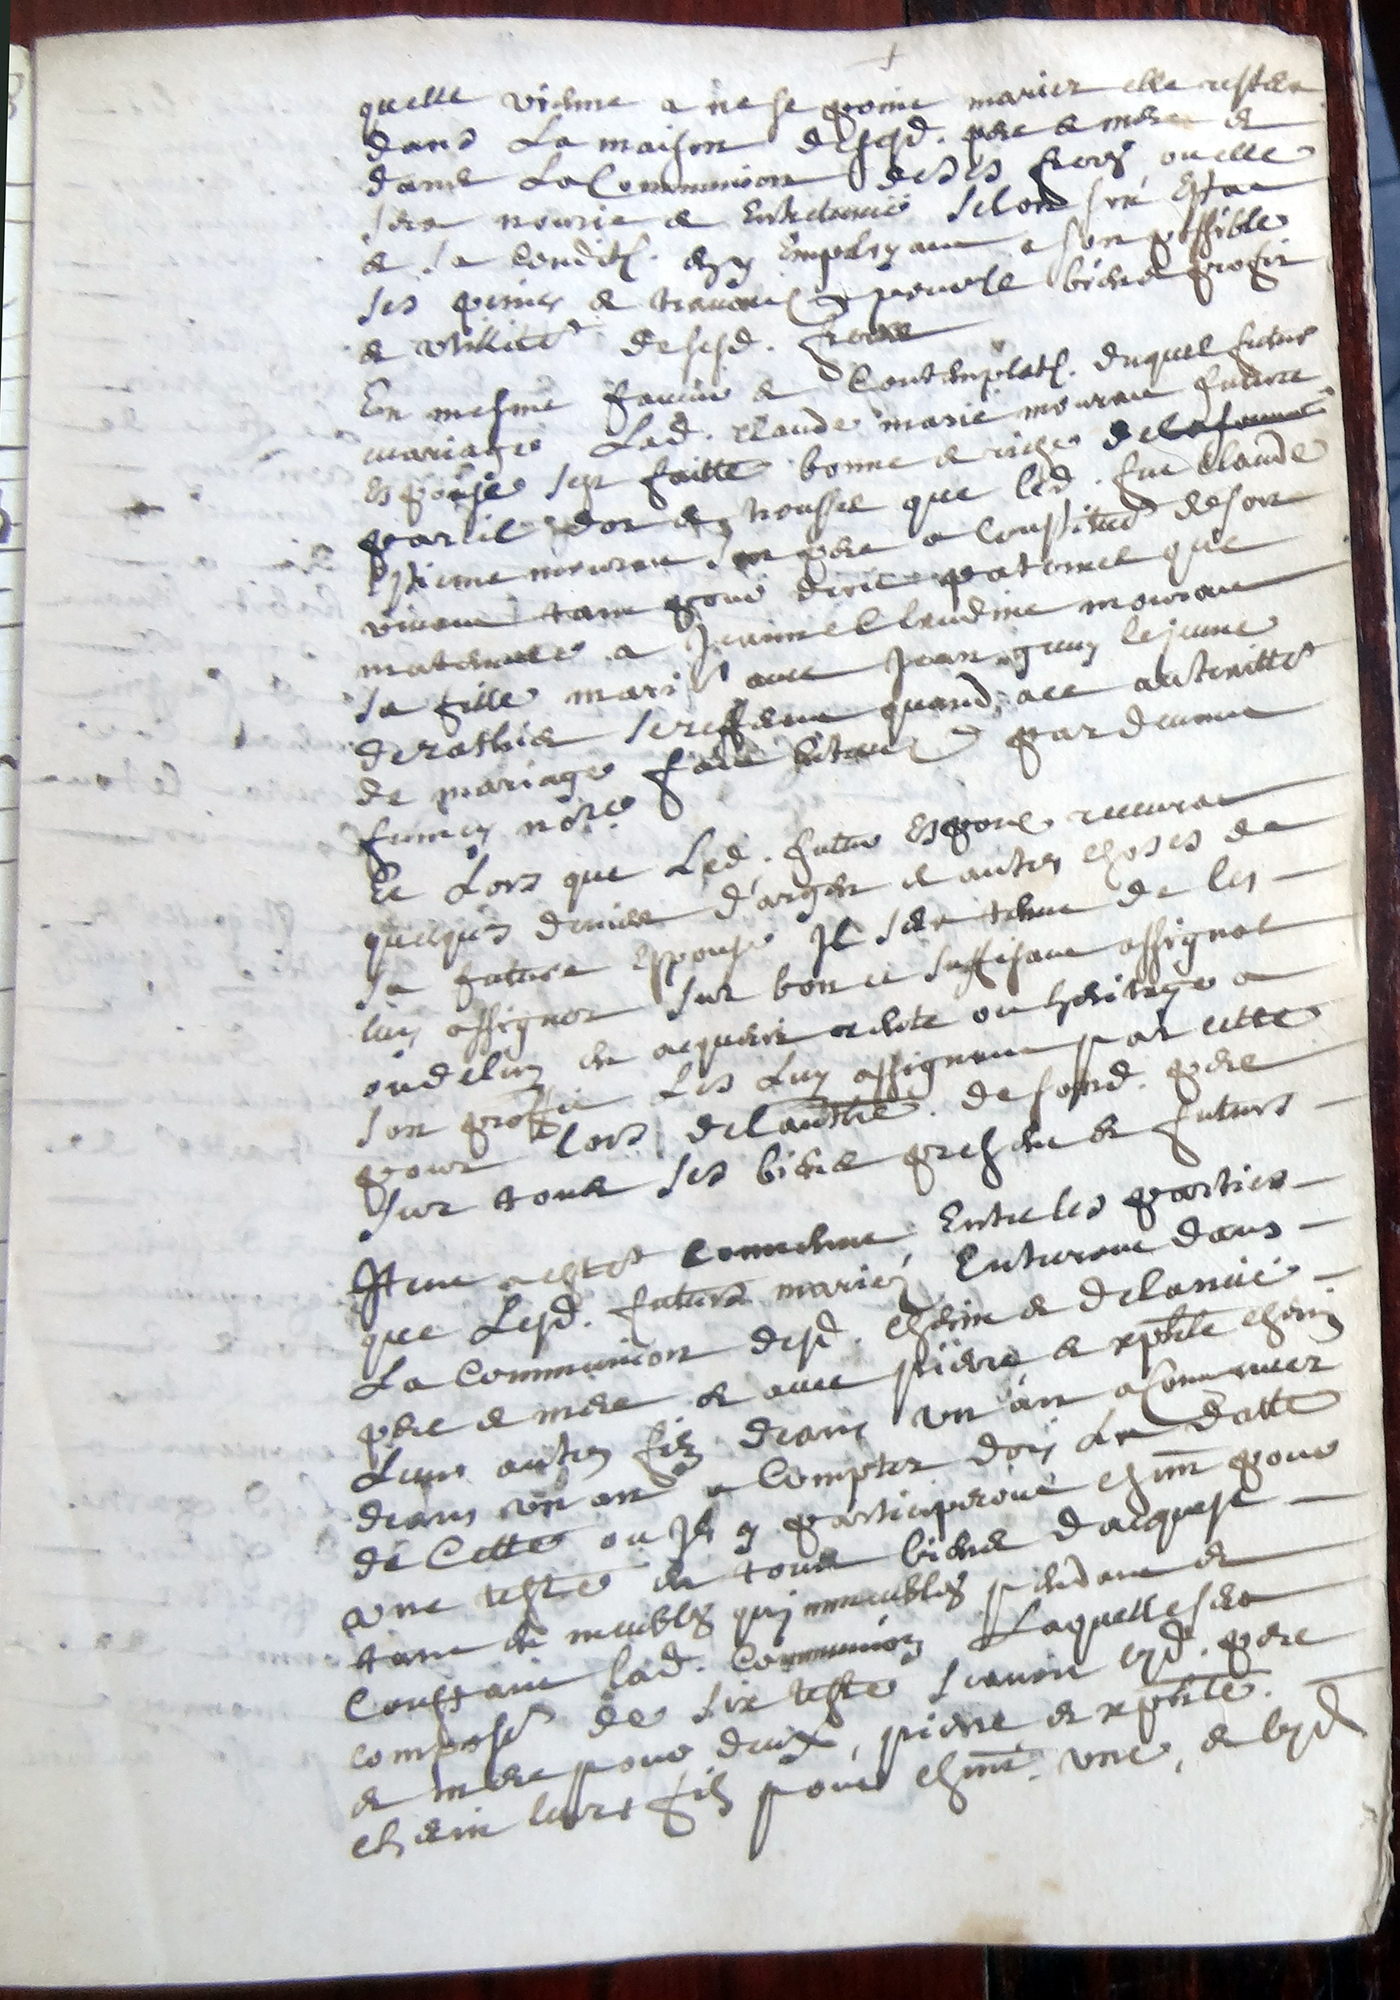 quelle vienne a ne se point marier elle restera
dans La maison desesd. pere & mere &
dans La Communion de ses freres ou elle
sera nourie & Entretenue selon son Estat
& sa condit. en y Employant a son possible
ses peines & travaux pour le bien & profit
& utilité desesd. freres
En mesme faveur & Contemplat. duquel futur
mariage Lad. Claude marie mourau future
espouse sest faitte bonne & riche de la somme
pareil dot & trousse que led. fut Claude
Estienne mourau son pere a Constitué de son
vivant tant pour droit paternel que
maternel a Jeanne Claudine mourau
sa fille mariée avec Jean guy le jeune
de rothier sereffeue quand, au antraitté
de mariage fait entreux par devant
funiey nore
Et Lors que Led. futur Espoux recevra
quelques deniers d'argent & autres choses de
sa future Espouse Jl sera tenu de les
luy assigner sur bon et suffisant assignal
ou delui en acquerir rente ou heritage a
son proffit Les Luy assignant par cette
pour lors de lauthté. de sond. pere
sur tous ses biens presens & futurs
Item a esté Convenue Entre les parties
que Lesd. futurs mariés Entreront dans
La Communion desd. & delanue
pere & mere & avec pierre &
Leurs autres fils dans un an a Commencer
dans un an a Compter dois La datte
de Cette ou Jls y participeront chun pour
une teste en tous biens dacquest
tant en meubles qu'immeubles pendant &
Constant lad. Communion Laquelle sera
composé de six teste scavoir lesd. pere
& mere pour deux, pierre &
leurs fils pour chune. une, & lesd